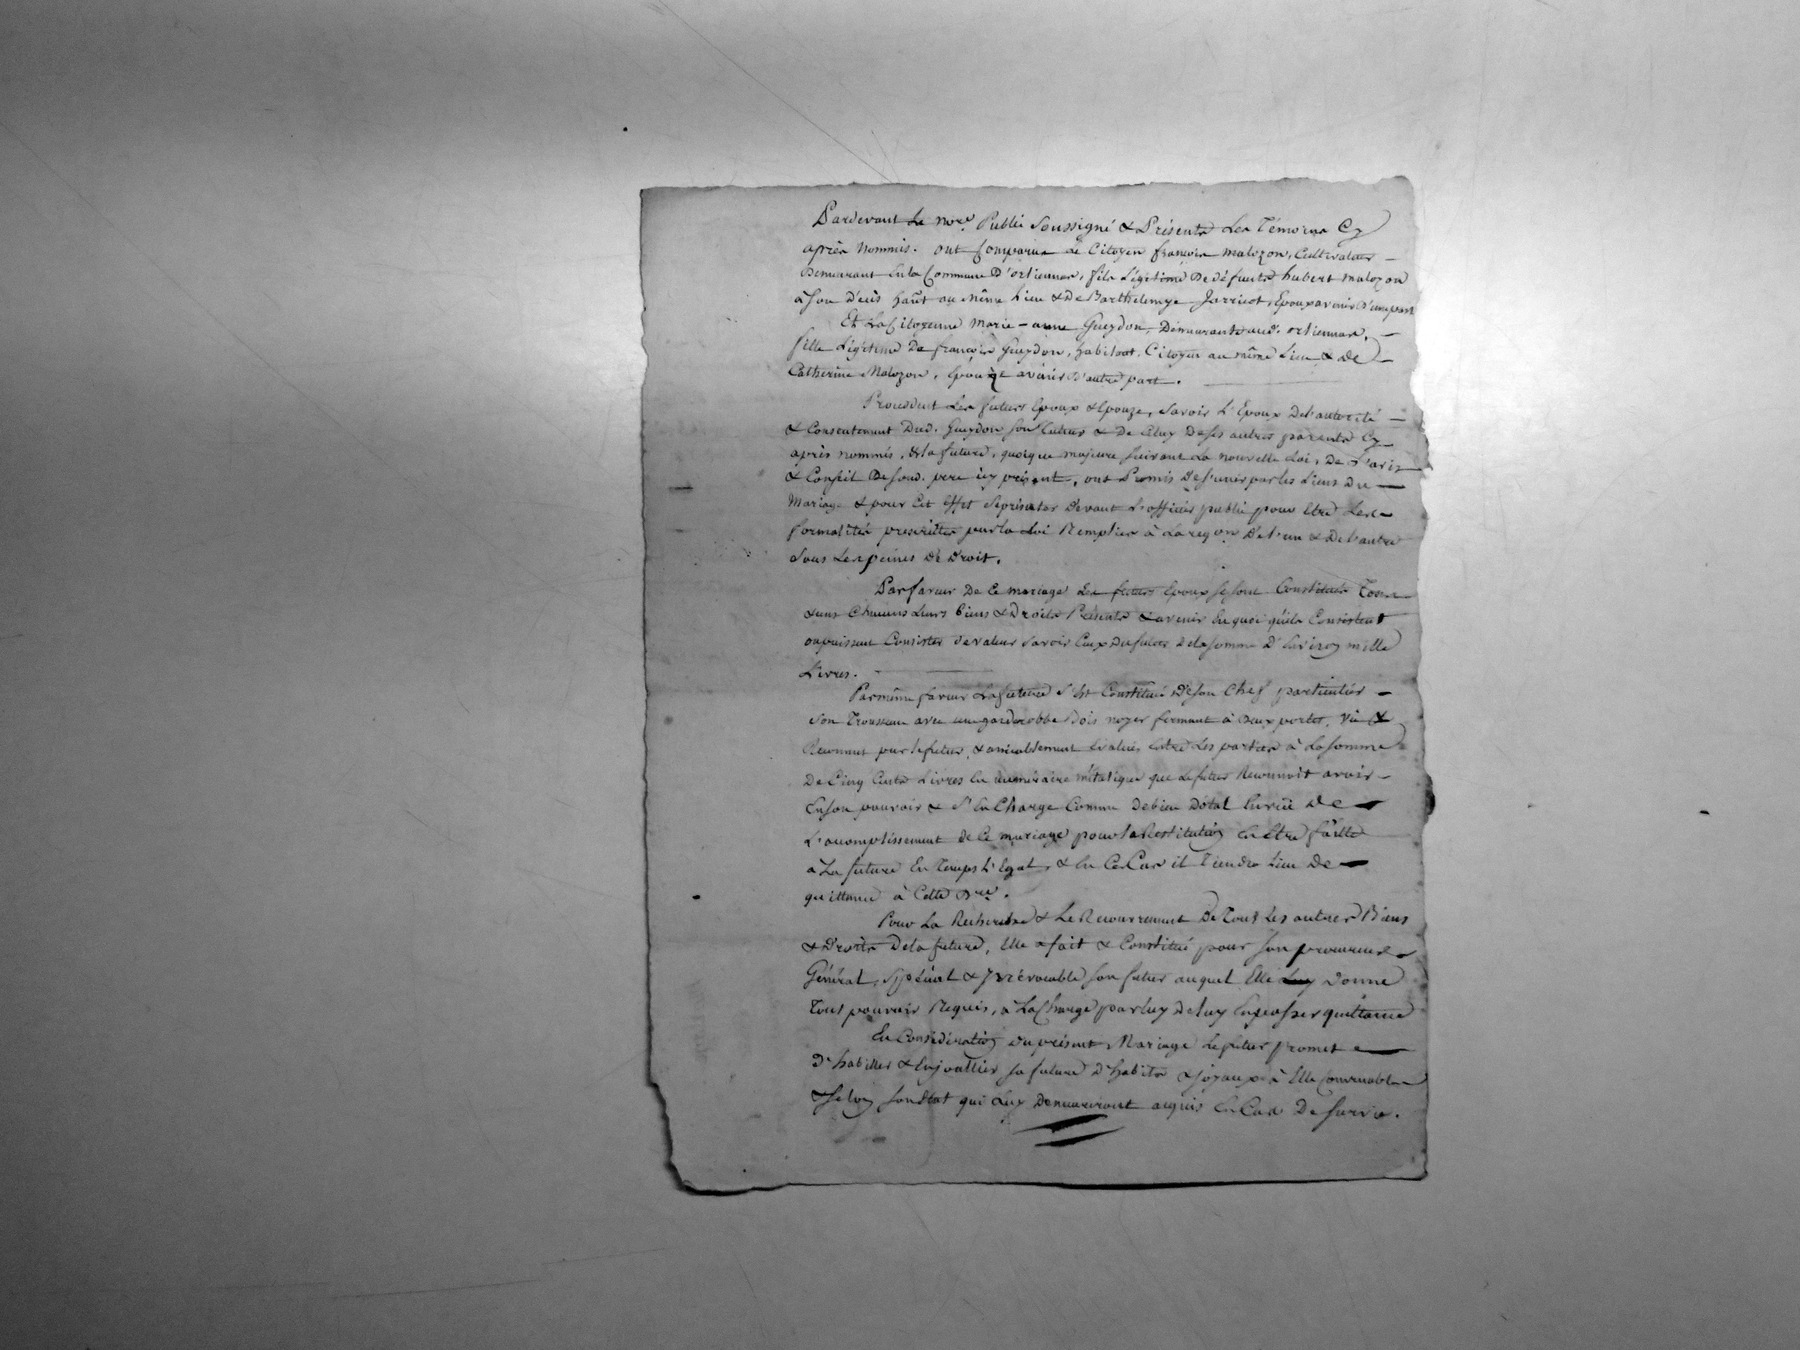 Pardevant Le No.re Public Soussigné & Présents Les Témoins Cy
après Nommés. ont Comparu Le Citoyen françois malozon, Cultivateur
Demeurant En la Commune D'orliennas, fils Légitime De défunts hubert malozon
à Son décès hab.t au même Lieu & De Barthelemye Jarricot, Epoux avenir D'une part
Et La Citoyenne Marie-anne Gueydon, Demeurante aud. orliennas,
fille Légitime De françois Gueydon, habitant, Citoyen au même Lieu & De
Catherine Malozon, Epouze avenir D'autre part.
Procédant Les futurs Epoux & Epouze, Savoir L'Epoux De l'autorité
& Consentement Dud. Gueydon Son Curateur & De Celuy De Ses autres parents Cy
après nommés, & la future, quoique majeure Suivant La nouvelle Loi, De L'avis
& Conseil De Sond. pere icy présent, ont Promis De S'unir par les Liens Du
Mariage & pour Cet Effet Se présenter Devant L'officier public pour Etre Les
formalités prescrittes par la Loi Remplies à La requon De l'un & De l'autre
Sous Les peines De Droit.
Par faveur De Ce mariage Les futurs Epoux Se Sont Constitués Tous
& uns Chacuns Leurs biens & Droits Présents & avenir En quoi qu'ils Consistent
ou puissent Consister De valeur Savoir Ceux Du futur De la Somme D'Environ mille
Livres.
Par même faveur La future S'est Constitué De Son Chef particulier
Son Trousseau avec une garderobbe Bois noyer fermant à Deux portes, Vu &
Reconnut par le futur, & amicablement Evalués Entre Les parties à La Somme
De Cinq Cents Livres En numéraire métalique que Le futur Reconnoit avoir
En Son pouvoir & S'En Charge Comme De bien Dotal En vüe De
L'accomplissement de Ce mariage pour la Restitution En Etre faitte
à La future En Temps L'Egal, & En Ce Cas il Tiendra Lieu De
quittance à Cette D.re.
Pour La Recherche & Le Recouvrement De Tous Les autres Biens
& Droits De la future, Elle a fait & Constitué pour Son procureur
Général, Spécial & Irrévocable Son futur auquel Elle Luy Donne
Tout pouvoir Requis, à La Charge par luy De luy En passer quittance
En Considération Du présent Mariage Le futur promet
D'habiller & Enjoallier Sa future D'habits & joyaux à Elle Convenables
& Selon Son Etat qui Luy Demeureront acquis En Cas De Survie.